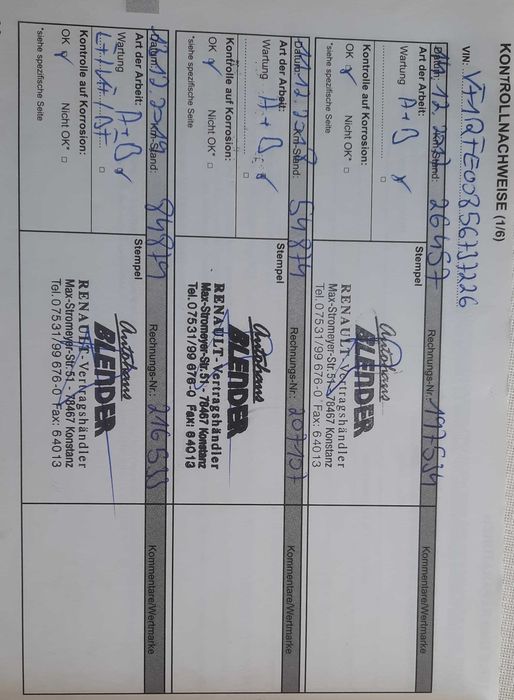 KONTROLLNACHWEISE (1/6)
VIN:
Datum: 12. 2017 Km-Stand: 26457 Rechnungs-Nr.: 197534 Kommentare/Wertmarke
Art der Arbeit: Stempel
Wartung A+B
Kontrolle auf Korrosion:
OK Nicht OK* □
*siehe spezifische Seite
Autohaus
BLENDER
RENAULT-Vertragshändler
Max-Stromeyer-Str. 51 - 78467 Konstanz
Tel. 07531/99 676-0 Fax: 64013
Datum: 12. 2018 Km-Stand: 54874 Rechnungs-Nr.: 207157 Kommentare/Wertmarke
Art der Arbeit: Stempel
Wartung A+B
Kontrolle auf Korrosion:
OK Nicht OK* □
*siehe spezifische Seite
Autohaus
BLENDER
RENAULT-Vertragshändler
Max-Stromeyer-Str. 51 - 78467 Konstanz
Tel. 07531/99 676-0 Fax: 64013
Datum: 12. 2019 Km-Stand: 84874 Rechnungs-Nr.: Kommentare/Wertmarke
Art der Arbeit: Stempel
Wartung A+B
Kontrolle auf Korrosion:
OK Nicht OK* □
*siehe spezifische Seite
Autohaus
BLENDER
RENAULT-Vertragshändler
Max-Stromeyer-Str. 51 - 78467 Konstanz
Tel. 07531/99 676-0 Fax: 64013